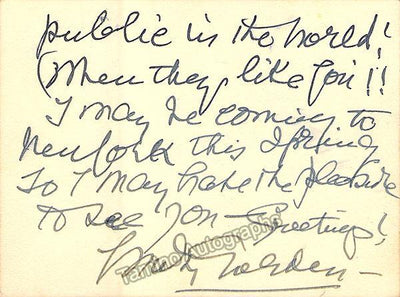 public in the world!
(When they like you!!
I may be coming to
New York this Spring
So I may have the pleasure
to see you - Greetings!
Tamino Autographs